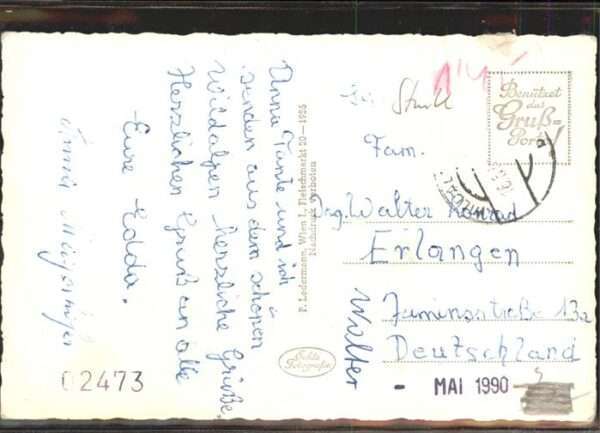 Anna Tante und ich
senden aus dem schönen
Wildalpen herzliche Grüße.
Herzlichen Gruß an alle
-Eure Edda.
02473
P. Ledermann, Wien I., Fleischmarkt 20—1955
Nachdruck verboten
Echte
Fotografie
Benützet
das
Gruß=
Porto
Fam.
Walter Konrad
Erlangen
Jaminsstraße 13a
Deutschland
Walter
- MAI 1990